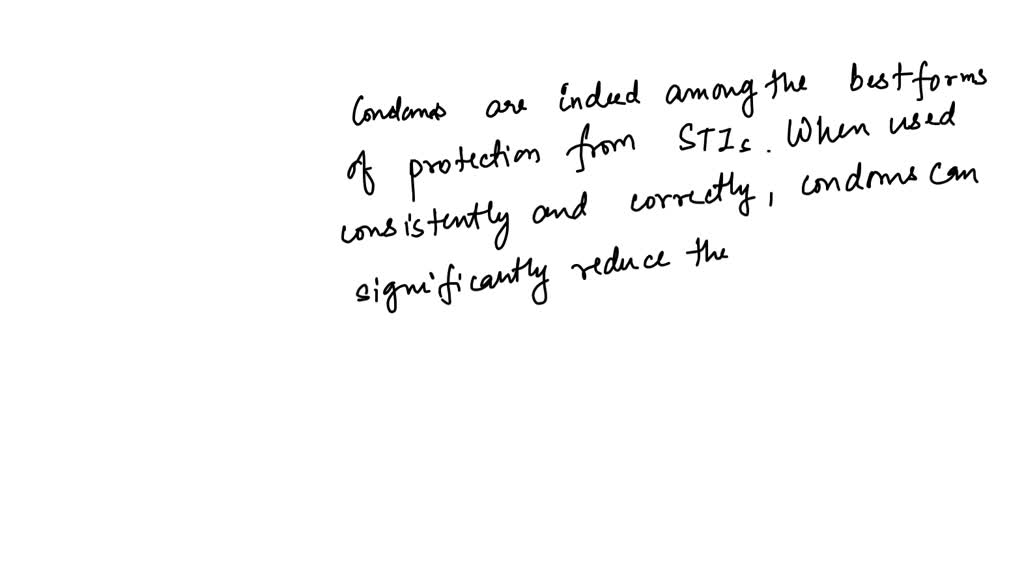 Condoms are indeed among the best forms
of protection from STIs. When used
consistently and correctly, condoms can
significantly reduce the